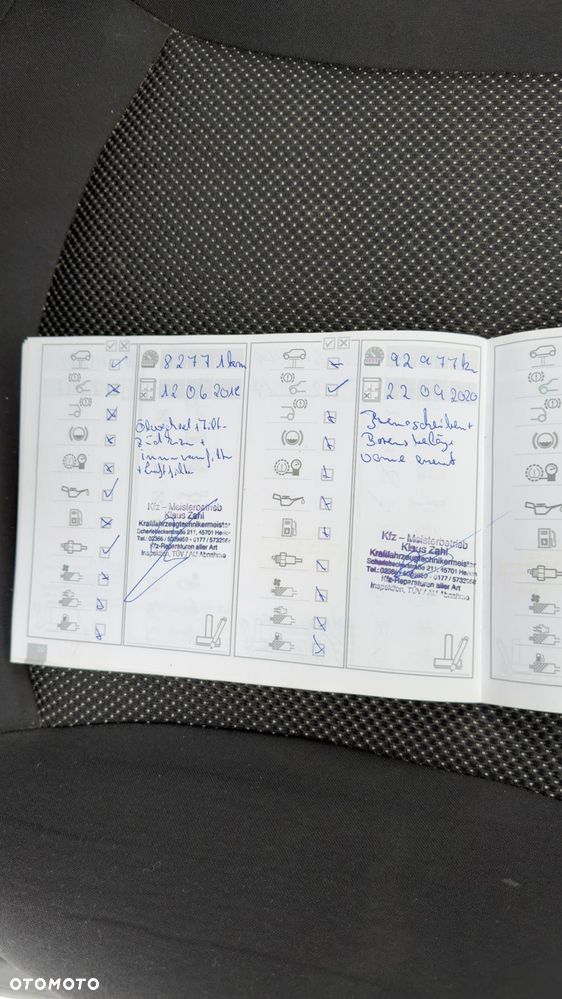 82771km
12 06 201
Ölwechsel + Filt
Zündkerzen +
innenraumfilter
+ Luftfilter
Kfz – Meisterbetrieb
Klaus Zahl
Kraftfahrzeugtechnikermeister
Scherlebeckerstraße 211, 45701 Herten
Kfz-Reparaturen aller Art
Inspektion, TÜV / AU Abnahme
92 977 km
22 09 2020
Bremsscheiben +
vorne
Kfz – Meisterbetrieb
Klaus Zahl
Kraftfahrzeugtechnikermeister
Scherlebeckerstraße 211, 45701 Herten
Kfz-Reparaturen aller Art
Inspektion, TÜV / AU Abnahme
OTOMOTO